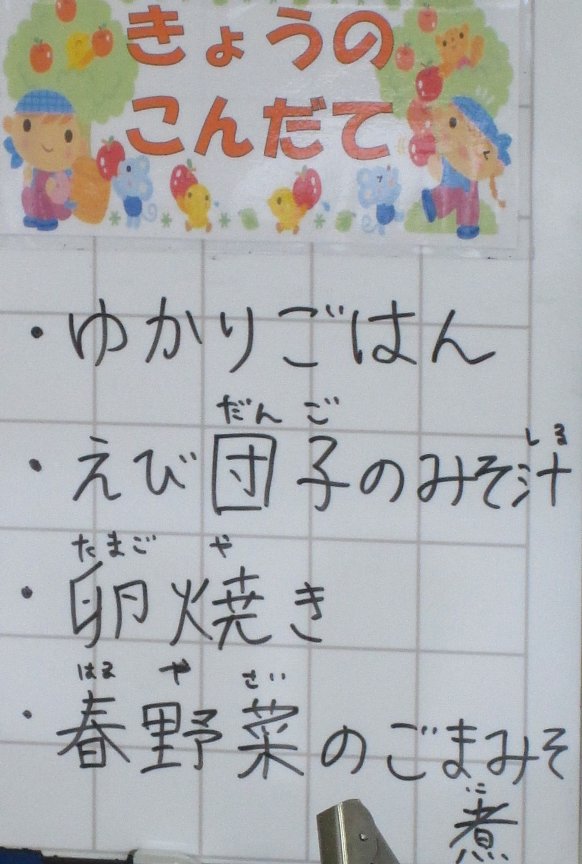 きょうの
こんだて
・ゆかりごはん
だんご
・えび団子のみそ汁
しる
たまご や
・卵焼き
はる や さい
・春野菜のごまみそ
に
煮